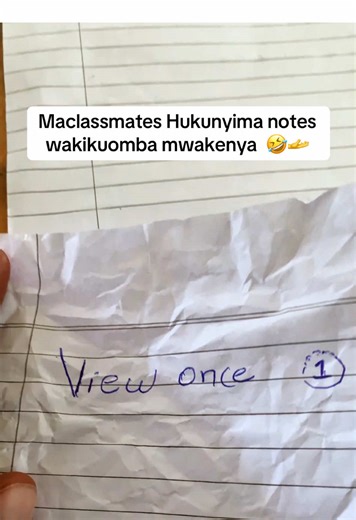 Maclassmates Hukunyima notes
wakikuomba mwakenya 🤣🫴
View once 1